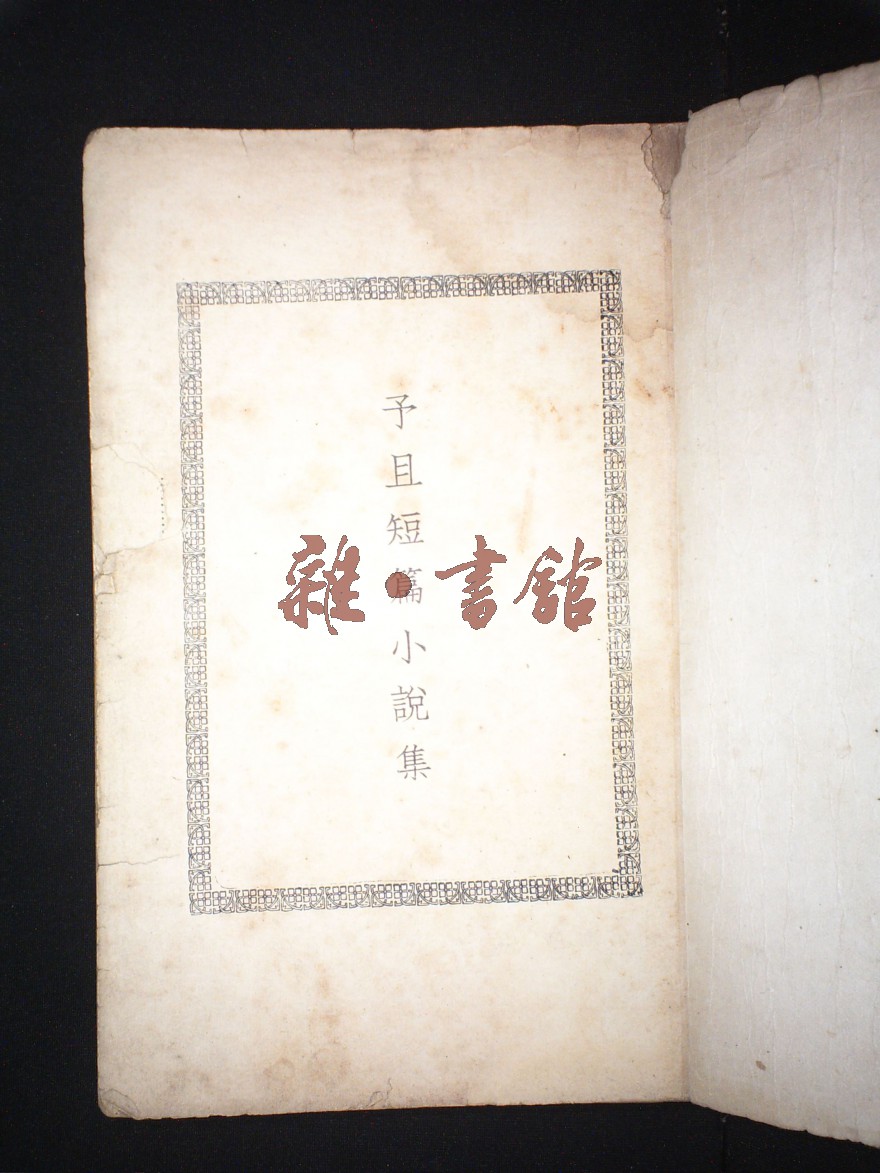 予且短篇小說集
雜·書館